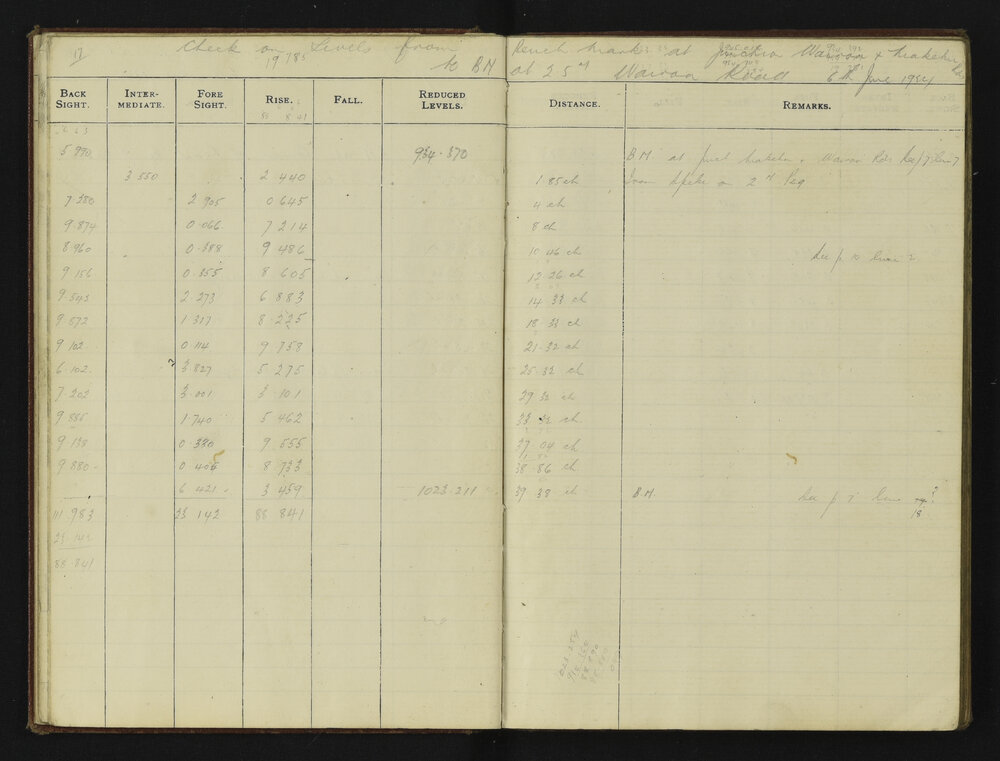 17 Check on Levels from Bench Marks at Junction Wairoa &
19 785
to BM at 25 M Wairoa Road 6th June 1934
BACK SIGHT. INTER-MEDIATE. FORE SIGHT. RISE. FALL. REDUCED LEVELS. DISTANCE. REMARKS.
88 841
5 990 934.370 BM at & Wairoa Rds
3 550 2 440 1.85 ch from Spike on 2 M Peg
7 280 2 905 0 645 4 ch
9.874 0.066 7 214 8 ch
8 960 0.388 9 486 10 46 ch See p 10 line 2
9 156 0.355 8 605 12 26 ch
9.543 2.273 6 883 14.33 ch
9.872 1.317 8 225 18 33 ch
9 102 0 114 9 758 21.32 ch
6.102 3.827 5 275 25.32 ch
7 202 3.001 3 101 29 32 ch
9 855 1.740 5 462 33 32 ch
9.138 0 330 9 555 37 04 ch
9 880 0 405 8 733 38.86 ch
6 421 3 459 1023.211 39 38 ch BM. See p 7 line
18
111 983 23 142 88 841
23 142
88 841